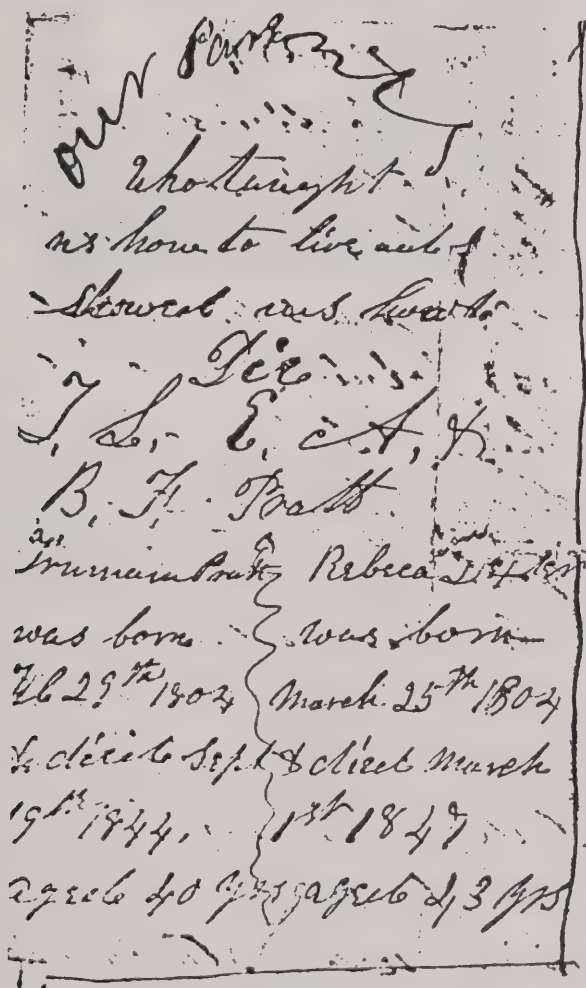 our Parents
Who taught
us how to live and
Showed us how to
Die
T. S., E. A, &
B. F. Pratt.
Truman Pratt
was born
Feb 29th 1804
& died Sept
19th 1844,
aged 40 yrs
Rebeca
was born
March 25th 1804
& died March
1st 1847
aged 43 yrs